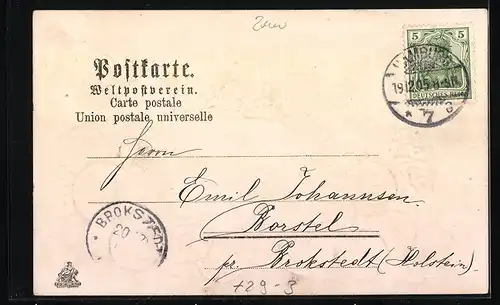 5 5
DEUTSCHES REICH
HAMBURG
19.12.05
* 7 c
Postkarte.
Weltpostverein.
Carte postale
Union postale universelle
Herrn
Emil Johannsen
Borstel
pr. Brokstedt (Holstein).
BROKSTEDT
20
+29-3